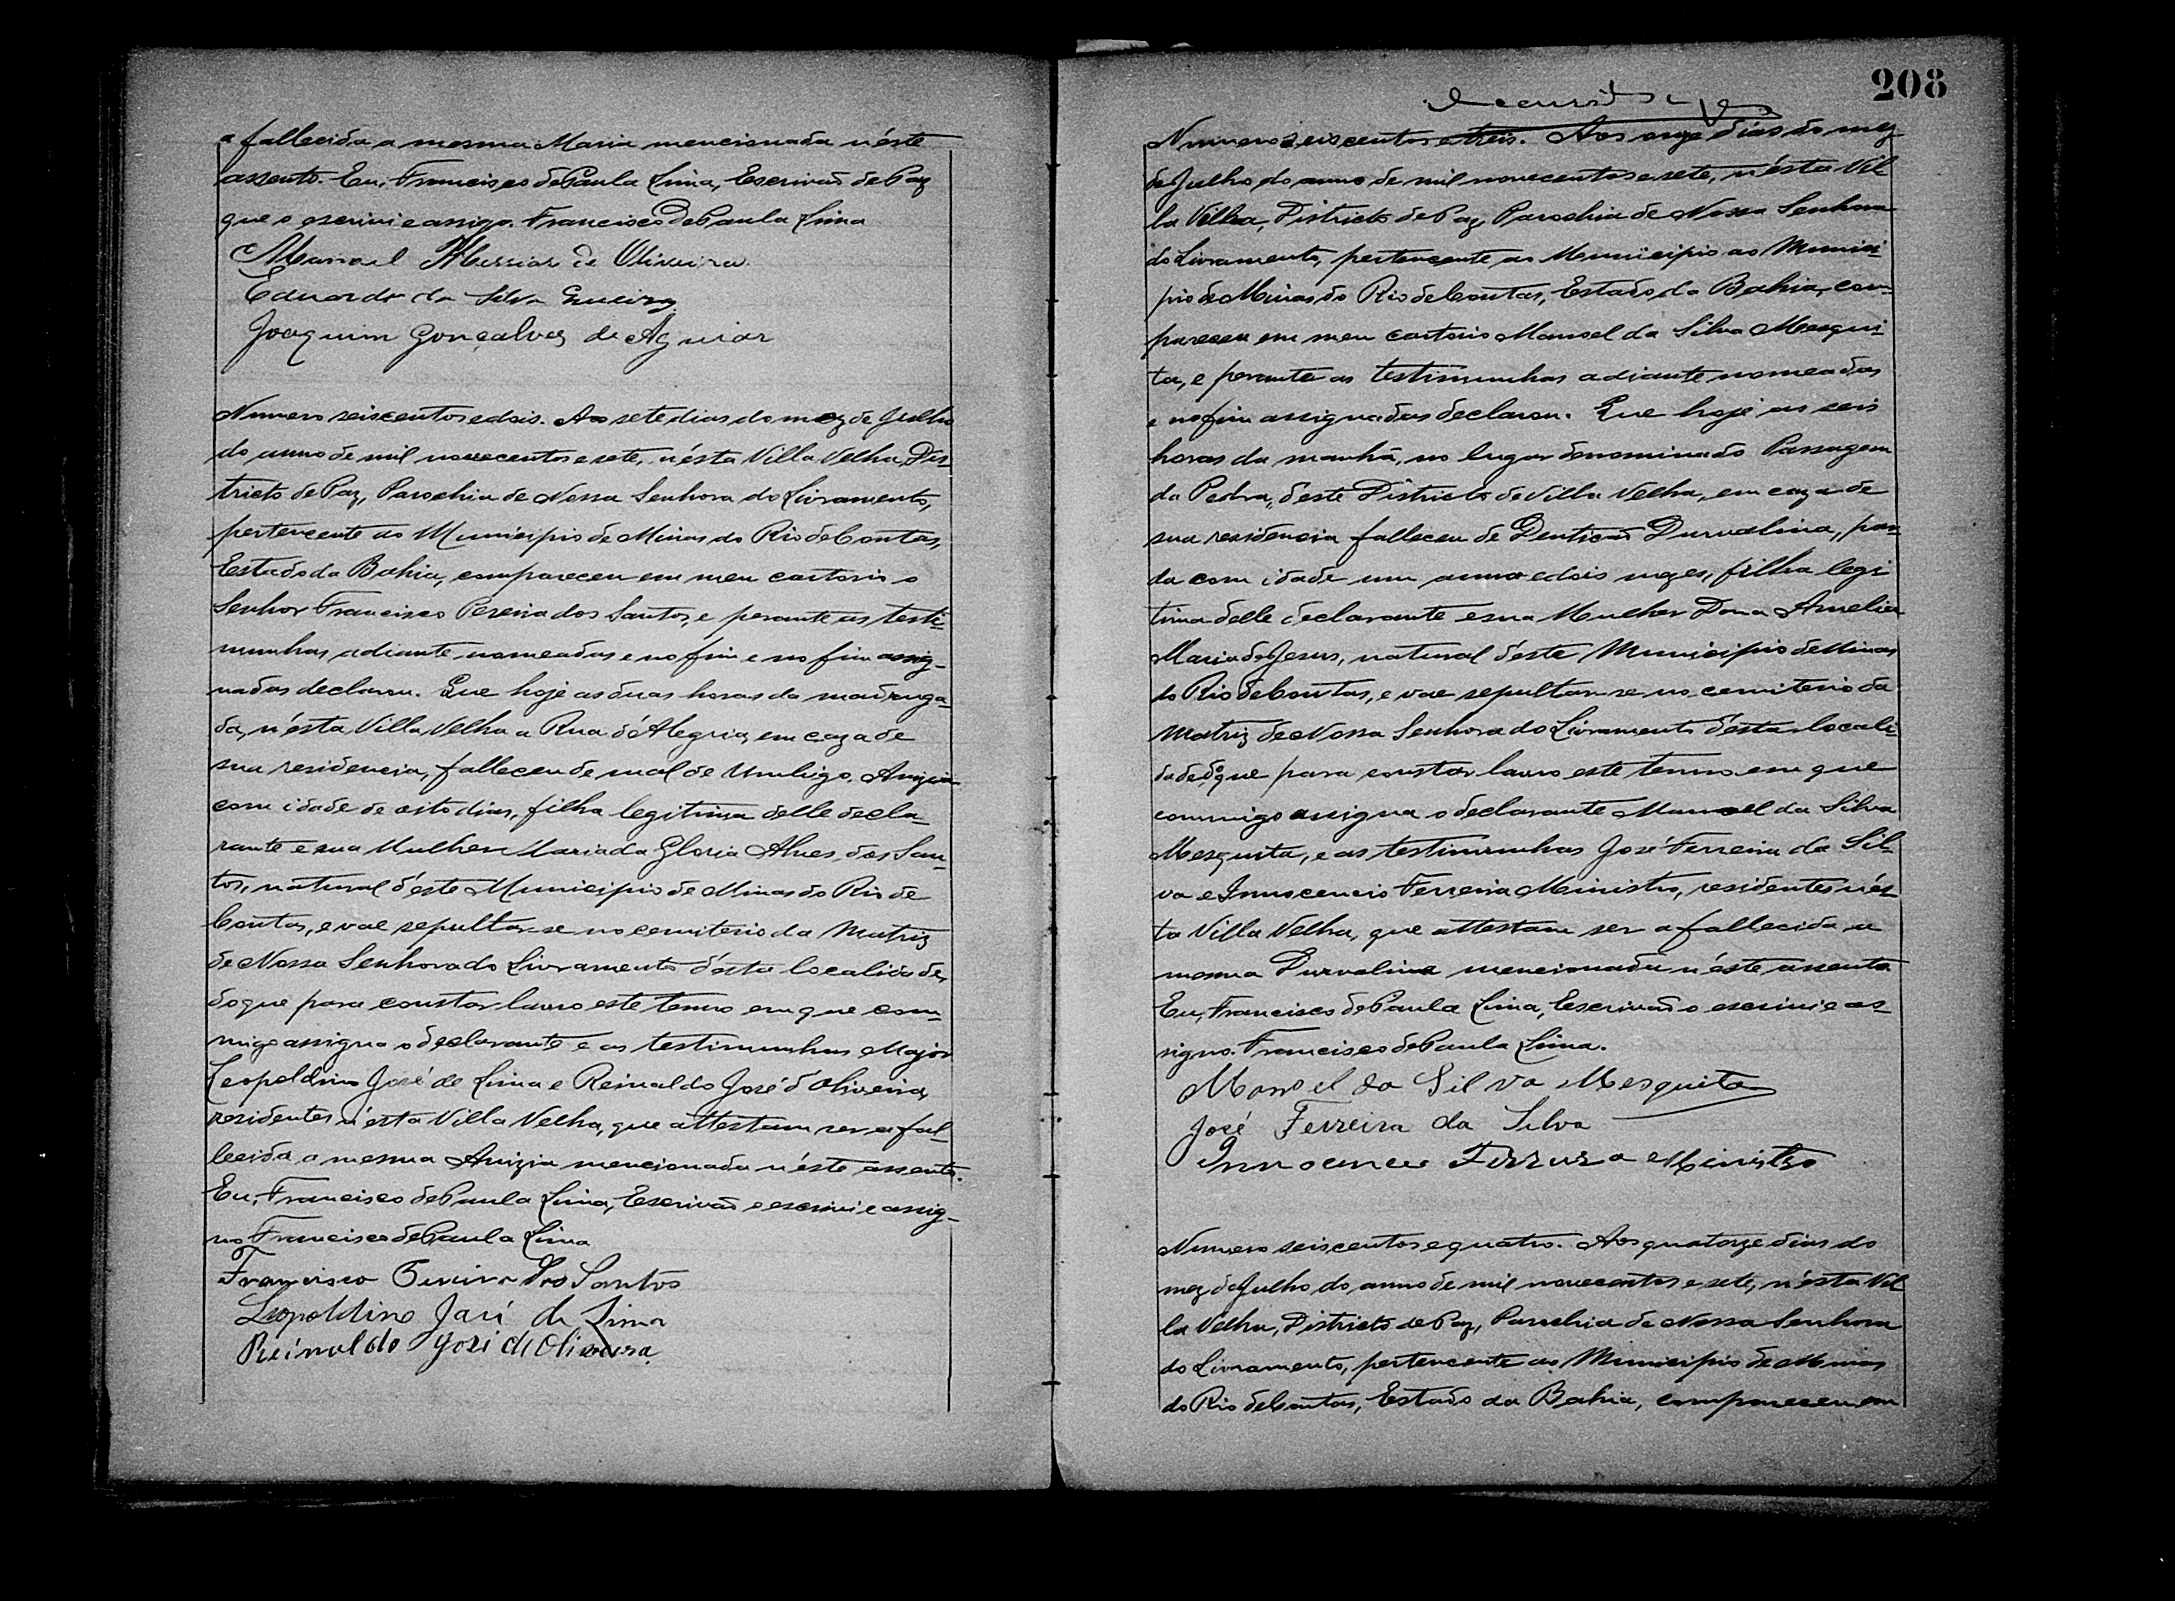 a fallecida a mesma Maria mencionada n'éste
assento. Eu, Francisco de Paula Lima, Escrivaõ de Paz
que o escrivi e assigo. Francisco De Paula Lima
Manoel Messias de Oliveira
Eduardo da Silva
Joaquim Gonçalves de Aguiar
Numero seiscentos e dois. Aos sete dias do mez de Julho
do anno de mil novecentos e sete, n'ésta Villa Velha, Dis-
tricto de Paz, Parochia de Nossa Senhora do Livramento,
pertencente ao Municipio de Minas do Rio de Contas,
Estado da Bahia, compareceu em meu cartorio o
Senhor Francisco Pereira dos Santos, e perante as teste-
munhas adiante nomeadas e no fim e no fim assig-
nadas declarou. Que hoje as duas horas da madruga-
da, n'ésta Villa Velha a Rua d'Alegria, em caza de
sua residencia, falleceu de mal de Umbigo, Anizia
com idade de oito dias, filha legitima delle decla-
rante e sua Mulher Maria da Gloria Alves dos San-
tos, natural d'éste Municipio de Minas do Rio de
Contas, e vae sepultar-se no cemiterio da Matriz
de Nossa Senhora do Livramento d'ésta localidade,
do que para constar lavro este termo em que com-
migo assigna o declarante e as testimunhas Major
Leopoldino José de Lima e Reinaldo José d'Oliveira,
residentes n'ésta Villa Velha, que attestam ser a fal-
lecida a mesma Anizia mencionada n'éste assento.
Eu, Francisco de Paula Lima, Escrivaõ o escrivi e assig-
no Francisco de Paula Lima
Francisco Pereira dos Santos
Leopoldino José de Lima
Reinaldo José de Oliveira
208
Numero seiscentos e treis. Aos onze dias do mez
de Julho do anno de mil novecentos e sete, n'ésta Vil
la Velha, Districto de Paz, Parochia de Nossa Senhora
do Livramento, pertencente ao Municipio ao Munici-
pio de Minas do Rio de Contas, Estado da Bahia, com-
pareceu em meu cartorio Manoel da Silva Mesqui-
ta, e perante as testimunhas adiante nomeadas
e no fim assignadas declarou. Que hoje as seis
horas da manhã, no lugar denominado Passagem
da Pedra, d'éste Districto de Villa Velha, em caza de
sua residencia falleceu de Dentiçaõ Durvalina, par-
da com idade um anno e dois mezes, filha legi
tima delle declarante e sua Mulher Dona Amelia
Maria de Jesus, natural d'éste Municipio de Minas
do Rio de Contas, e vae sepultar-se no cemiterio da
Matriz de Nossa Senhora do Livramento d'ésta locali-
dade, do que para constar lavro este termo em que
commigo assigna o declarante Manoel da Silva
Mesquita, e as testimunhas José Ferreira da Sil-
va e Innocencio Ferreira Ministro, residentes n'és-
ta Villa Velha, que attestam ser a fallecida a
mesma Durvalina mencionada n'éste assento
Eu, Francisco de Paula Lima, Escrivaõ o escrivi e as-
signo. Francisco de Paula Lima.
Manoel da Silva Mesquita
José Ferreira da Silva
Innocencio Ferreira Ministro
Numero seiscentos e quatro. Aos quatorze dias do
mez de Julho do anno de mil novecentos e sete, n'ésta Vil
la Velha, Districto de Paz, Parochia de Nossa Senhora
do Livramento, pertencente ao Municipio de Minas
do Rio de Contas, Estado da Bahia, compareceu em